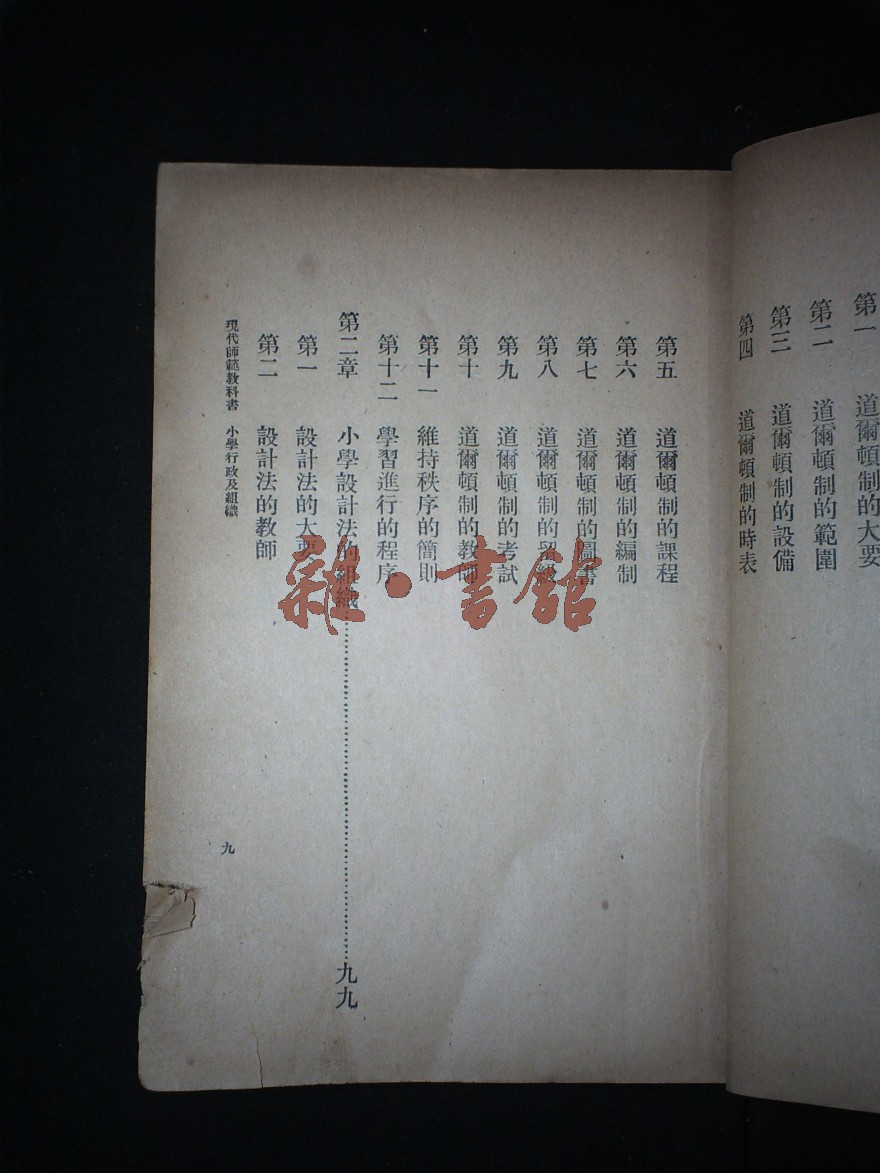 第一 道爾頓制的大要
第二 道爾頓制的範圍
第三 道爾頓制的設備
第四 道爾頓制的時表
第五 道爾頓制的課程
第六 道爾頓制的編制
第七 道爾頓制的圖書
第八 道爾頓制的留級
第九 道爾頓制的考試
第十 道爾頓制的教師
第十一 維持秩序的簡則
第十二 學習進行的程序
第二章 小學設計法的組織……九九
第一 設計法的大要
第二 設計法的教師
現代師範教科書 小學行政及組織
九
雜·書館